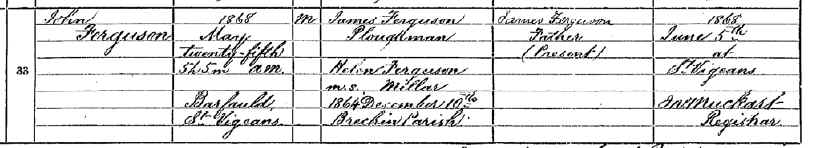 33
John
Ferguson
1868
May
twenty-fifth
5h 5m a.m.
St Vigeans
M
James Ferguson
Ploughman
Helen Ferguson
m.s. Millar
1864 December 10th
Brechin Parish
James Ferguson
Father
(Present)
1868
June 5th
at
St Vigeans
Registrar